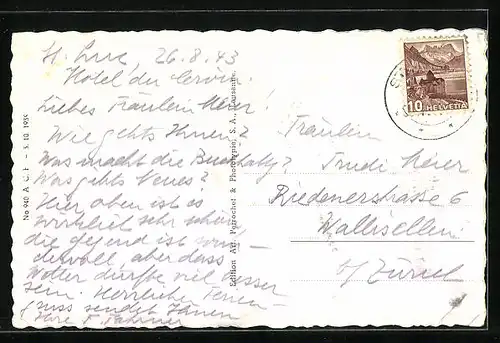 St. Luc, 26.8.43
Hotel du Cervin!
Liebes Fräulein Meier!
Wie gehts Ihnen?
Was macht die
Was gehts Neues?
Hier oben ist es
wirklich sehr schön,
die Gegend ist wun-
dervoll, aber dass
Wetter dürfte viel besser
sein. Herzlichen Ferien-
gruss sendet Ihnen
Ihre F.
No 940 A
5. 10. 1935
Edition Art. Perrochet & Phototypie, S. A., Lausanne
10 HELVETIA
Fräulein
Trudi Meier
Riedenerstrasse 6
Wallisellen
b/ Zürich